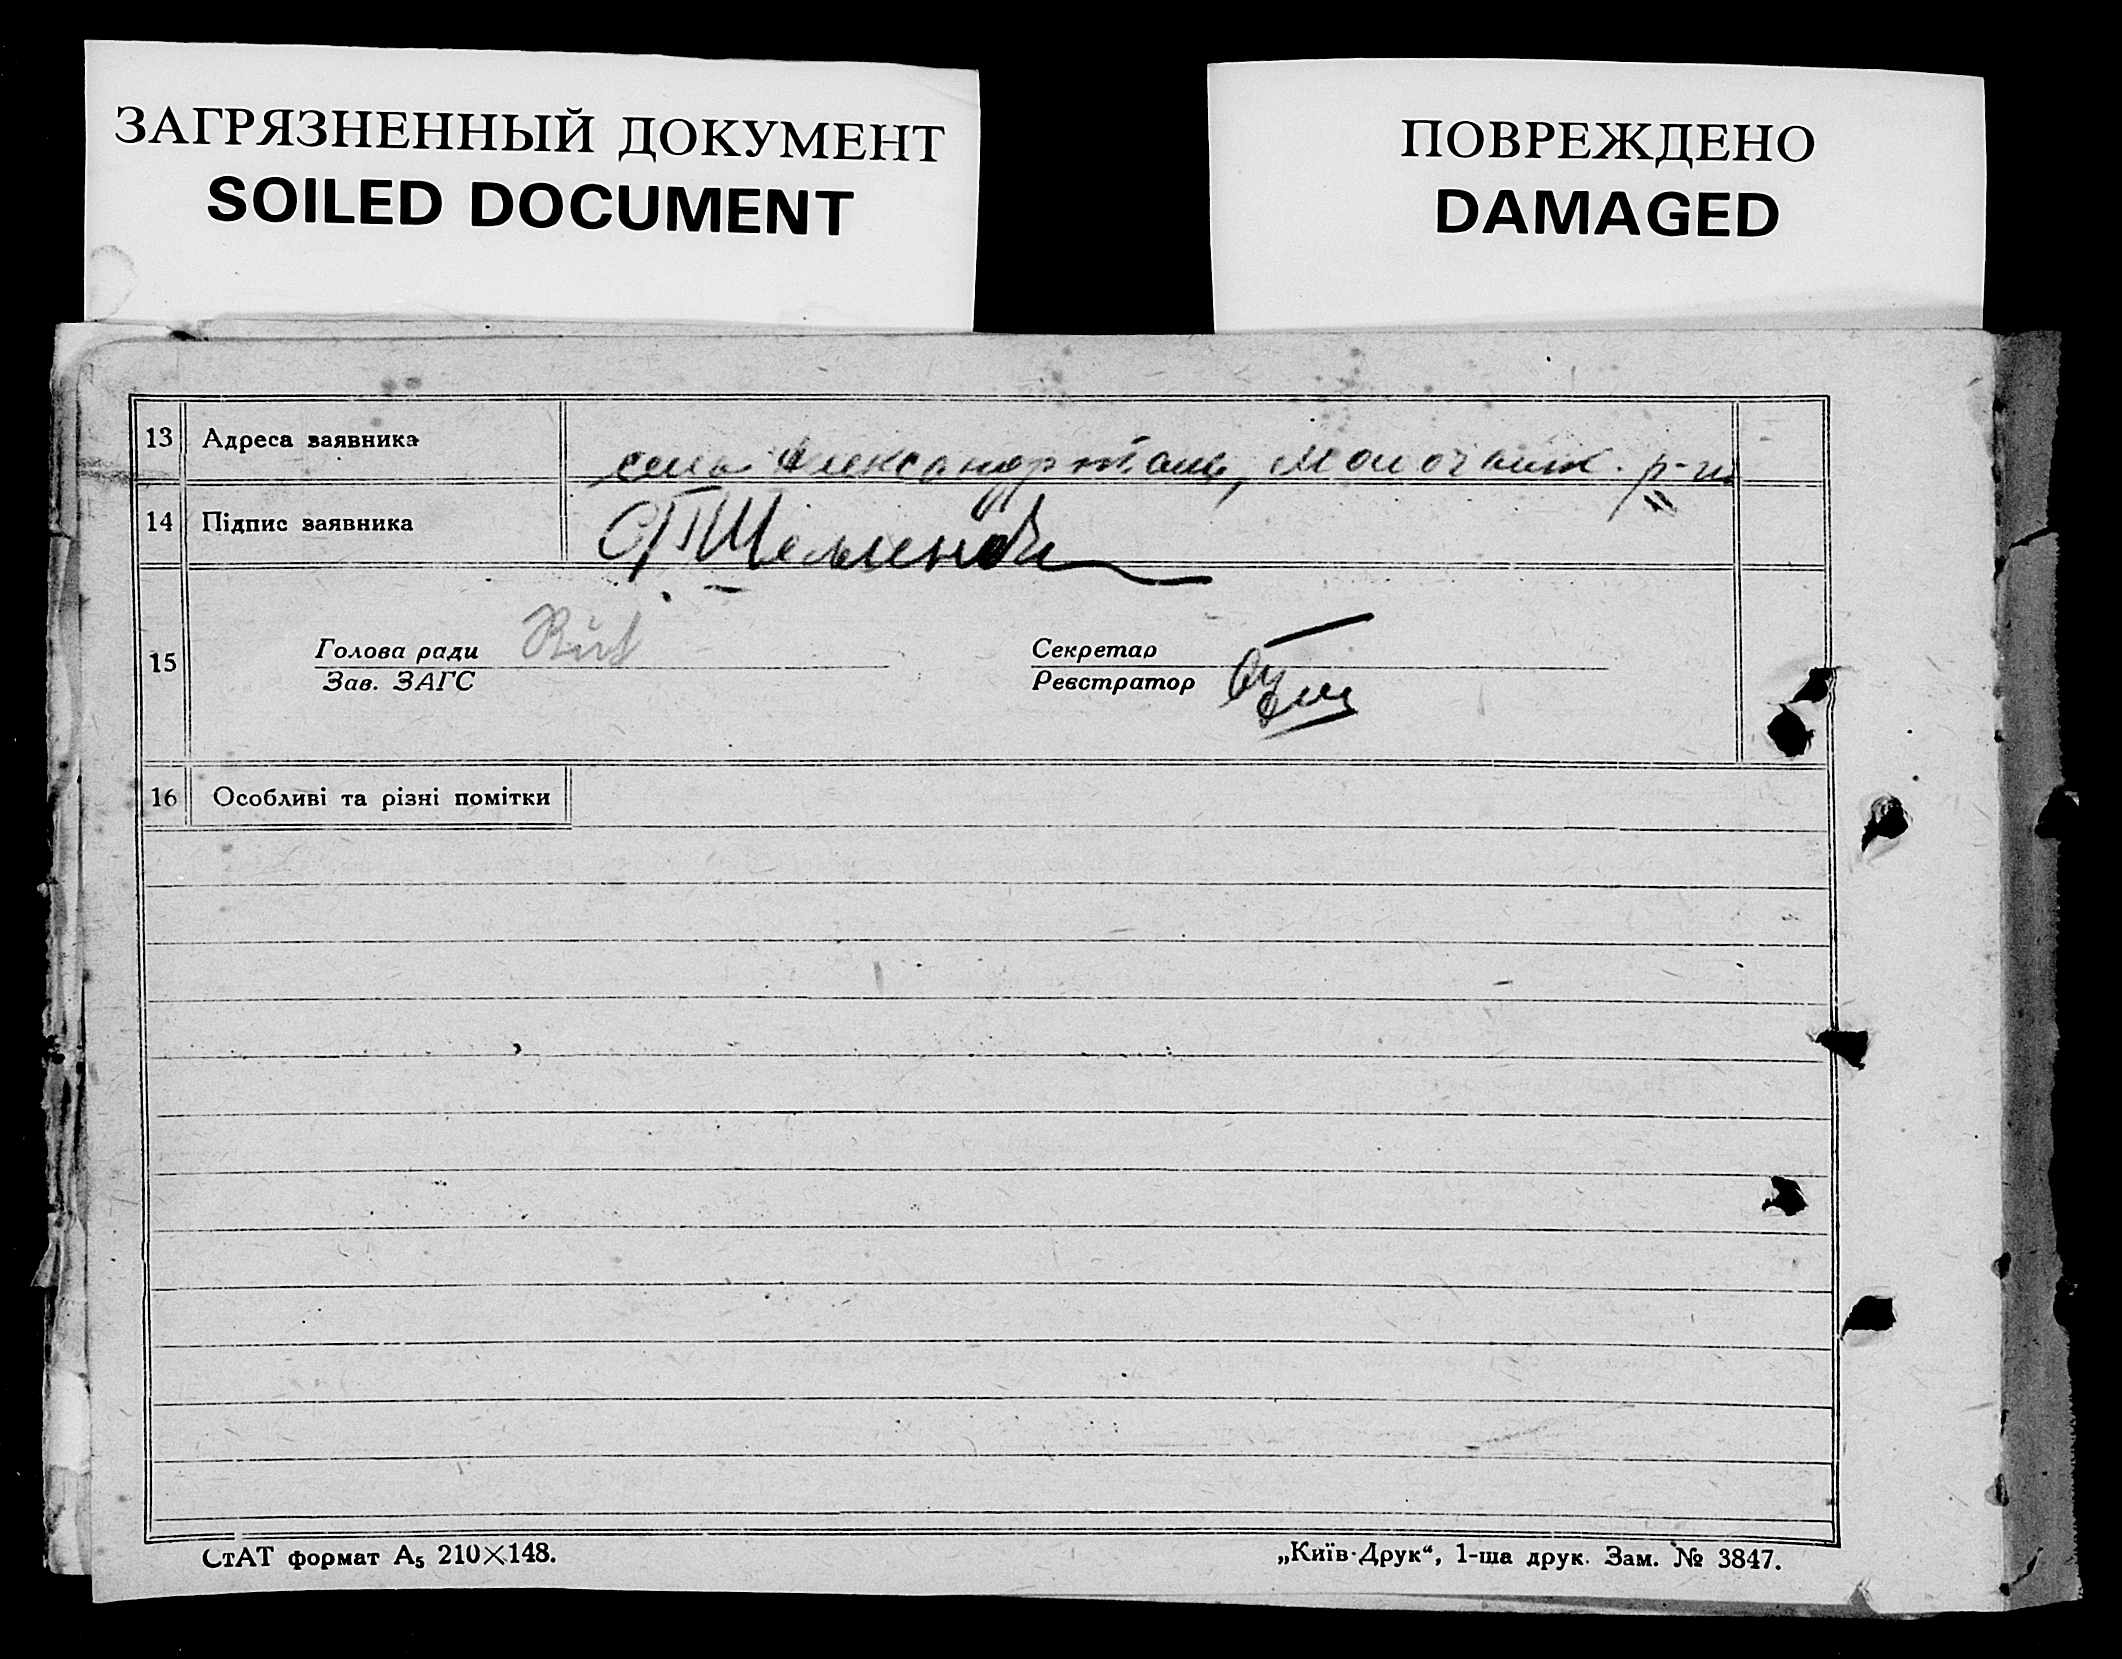 ЗАГРЯЗНЕННЫЙ ДОКУМЕНТ
SOILED DOCUMENT
ПОВРЕЖДЕНО
DAMAGED
13 Адреса заявника село Александрталь, Молочанск. р-н
14 Підпис заявника
15 Голова ради Секретар
Зав. ЗАГС Реєстратор
16 Особливі та різні помітки
СтАТ формат А₅ 210×148.
„Київ-Друк“, 1-ша друк. Зам. № 3847.